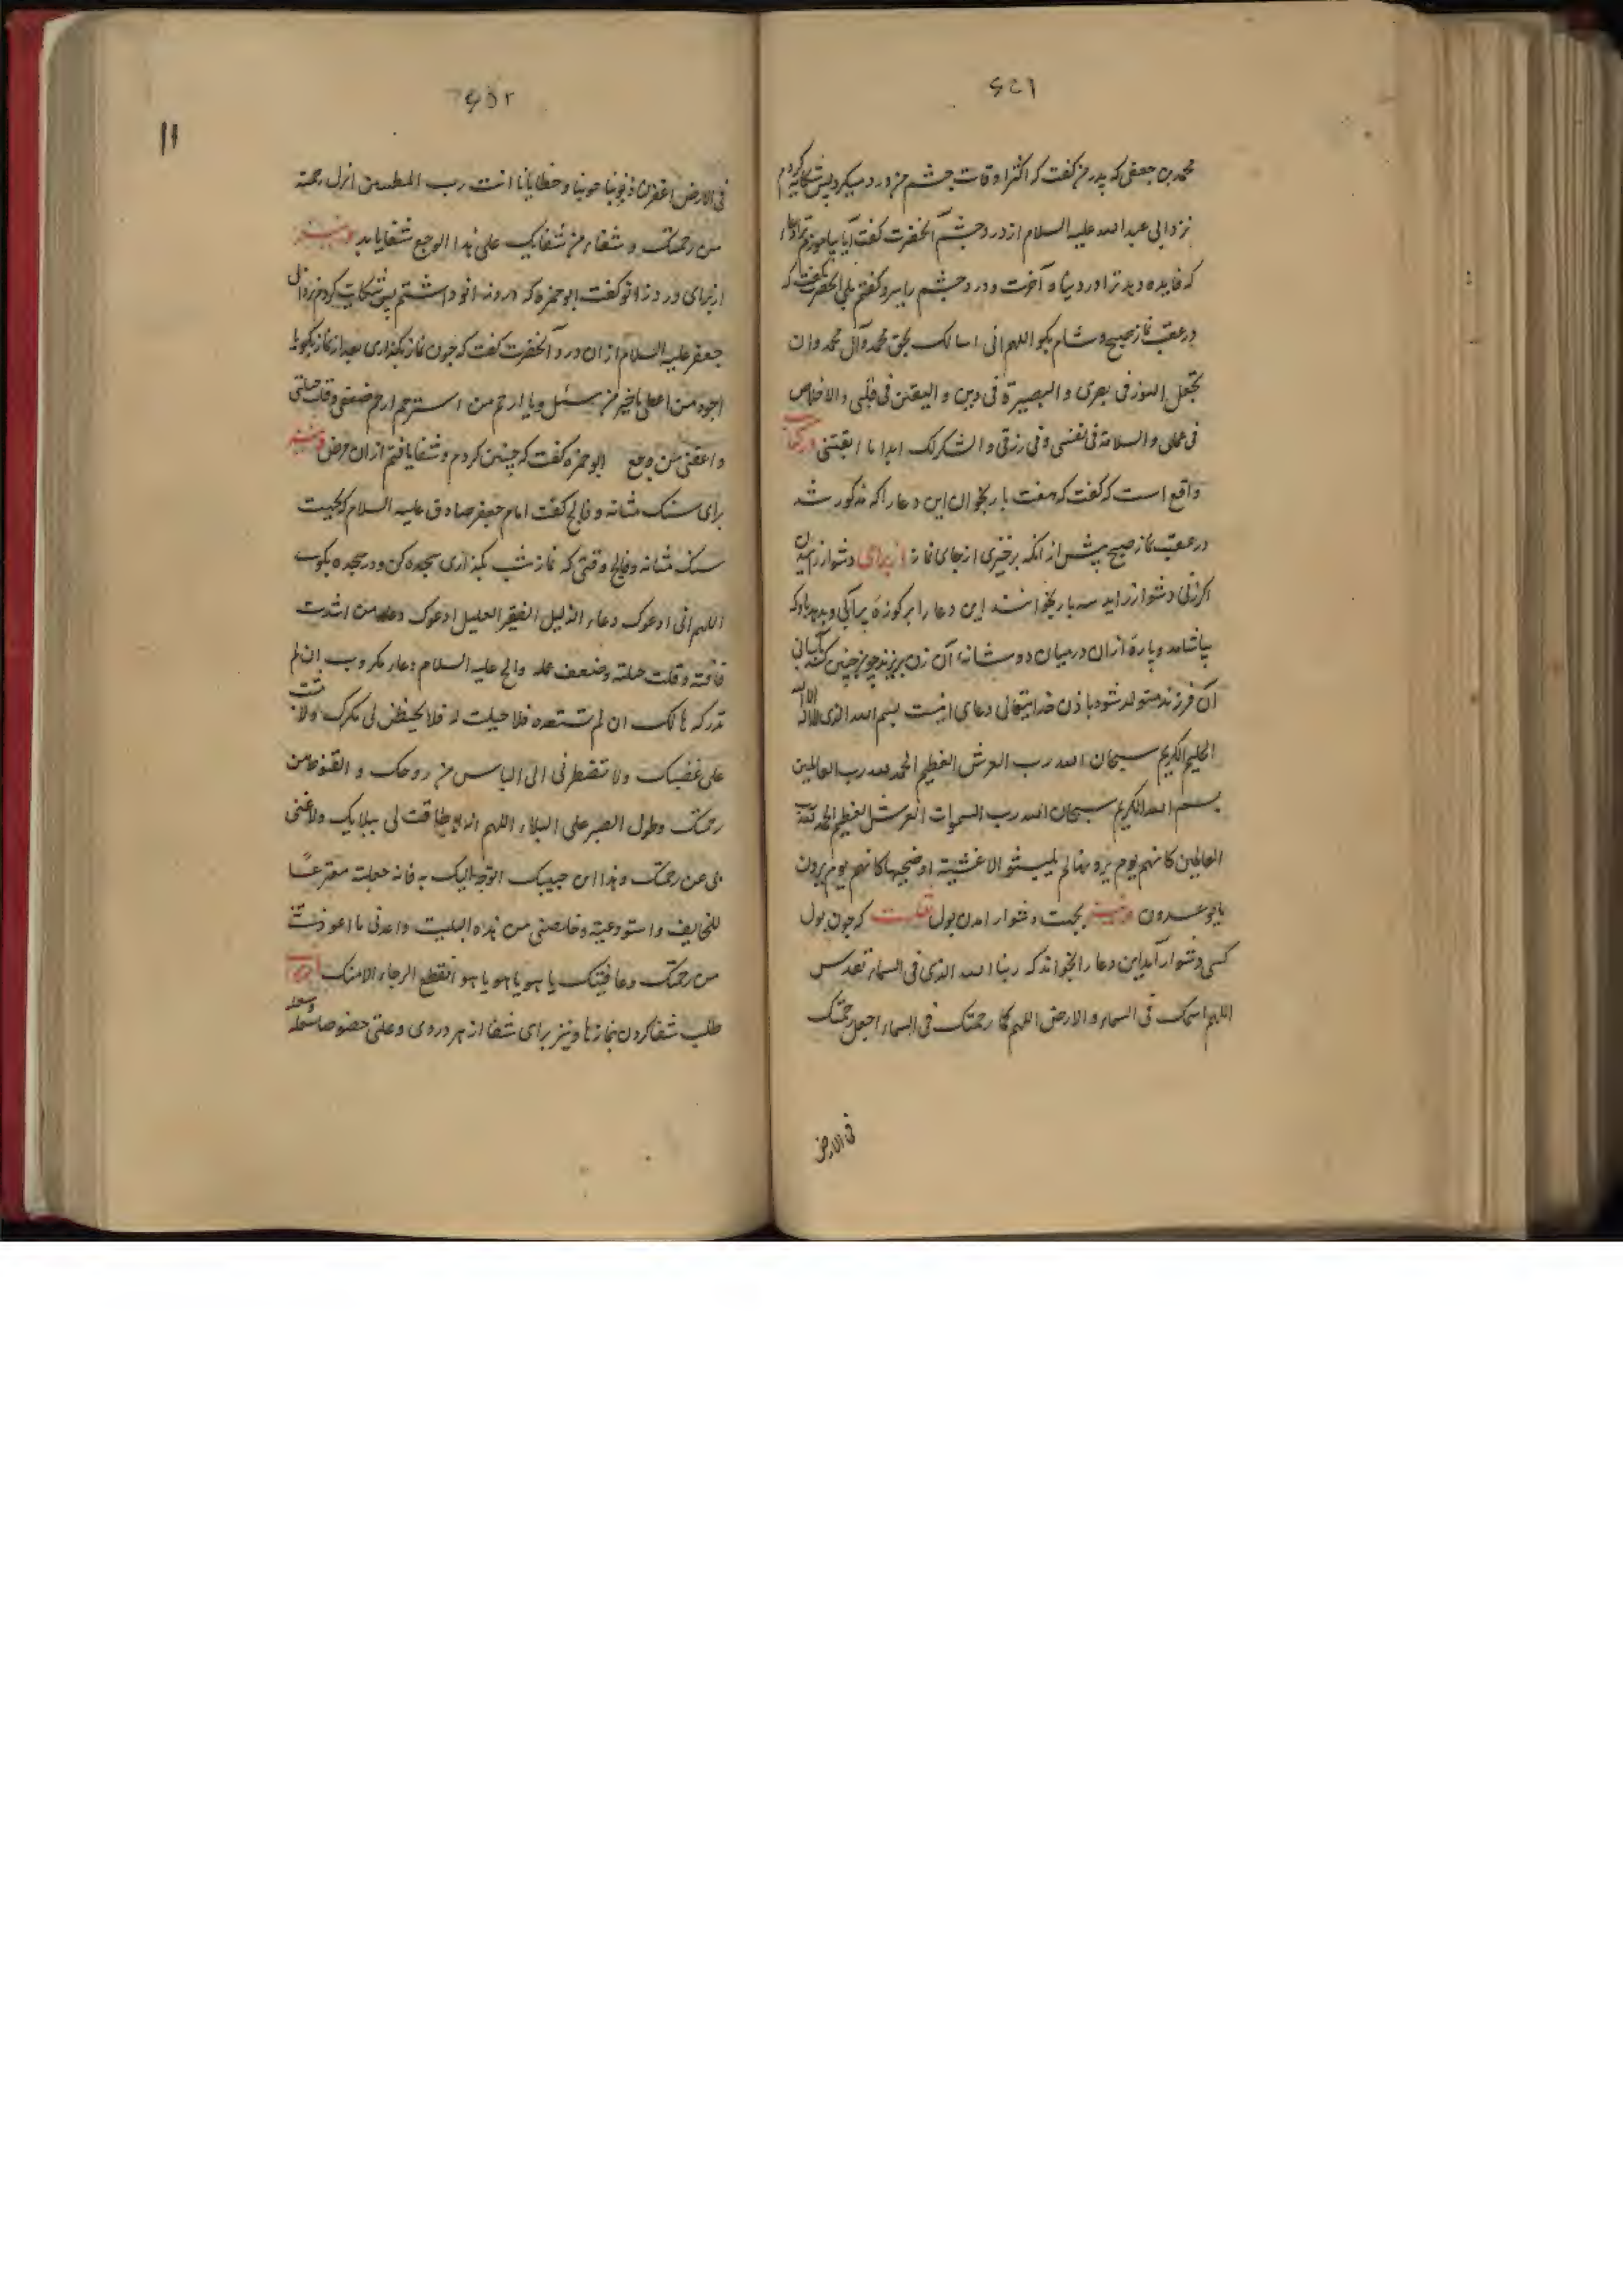 ۶۵۱
محمد بن جعفی که پدر من گفت که اکثر اوقات چشم من درد میکرد پس شکایه کردم
نزد ابی عبد الله علیه السلام از درد چشم آنحضرت گفت آیا بیاموزم ترا دعاء
که فایده دهد ترا در دنیا و آخرت و درد چشم را ببرد گفتم بلی آنحضرت گفت که
در عقب نماز صبح و شام بگو اللهم انی اسالک بحق محمد و آل محمد و ان
تجعل النور فی بصری و البصیرة فی دینی و الیقین فی قلبی و الاخلاص
فی عملی و السلامة فی نفسی و فی رزقی و الشکر لک ابدا ما ابقیتنی
واقع است که گفت که هفت بار بخوان این دعا را که مذکور شد
در عقب نماز صبح پیش از آنکه برخیزی از جای نماز از برای دشوار زاییدن
اگر زنی دشوار زاید سه بار بخوانند این دعا را بر کوزه پر آبی و بدهند که
بیاشامد و پارهٔ از آن در میان دو شانه آن زن بریزند چون چنین کنند بآسانی
آن فرزند متولد شود باذن خدایتعالی دعا اینست بسم الله الذی لا اله الا الله
الحلیم الکریم سبحان الله رب العرش العظیم الحمد لله رب العالمین
بسم الله الکریم سبحان الله رب السموات العرش العظیم الحمد لله رب
العالمین کانهم یوم یرونها لم یلبثو الا عشیة او ضحیها کانهم یوم یرون
ما یوعدون و نیز بجهت دشوار آمدن بول که چون بول
کسی دشوار آید این دعا را بخواند که ربنا الله الذی فی السماء تقدس
اللهم اسمک فی السماء و الارض اللهم کما رحمتک فی السماء اجعل رحمتک
فی الارض
۶۵۲
۱۱
فی الارض اغفر لنا ذنوبنا حوبنا و خطایانا انت رب المطهرین انزل رحمة
من رحمتک و شفاء من شفایک علی هذا الوجع شفا یابد و نیز
از برای درد زانو گفت ابو حمزه که درد زانو داشتم پس شکایت کردم نزد ابی
جعفر علیه السلام از آن درد آنحضرت گفت که چون نماز بگذاری بعد از نماز بگو یا
اجود من اعطی یا خیر من سئل و یا ارحم من استرحم ارحم ضعفی و قلت حیلتی
و اعفنی من وجعی ابو حمزه گفت که چنین کردم و شفا یافتم از آن مرض و نیز
برای سنک مثانه و فالج گفت امام جعفر صادق علیه السلام که بجهت
سنک مثانه و فالج وقتی که نماز شب بگذاری سجده کن و در سجده بگو
اللهم انی ادعوک دعاء الذلیل الفقیر العلیل ادعوک دعاء من اشتدت
فاقته و قلت حیلته و ضعف عمله والح علیه السلام دعاء مکروب ان لم
تدرکه هالک ان لم تستعده فلا حیلت له فلا یحیطن لی مکرک ولا تثبت
علی غضبک ولا تضطرنی الی الیأس من روحک و القنوط من
رحمتک و طول الصبر علی البلاء اللهم انه لا طاقت لی ببلایک ولا غنی
بی عن رحمتک و هذا ابن حبیبک اتوجه الیک به فانه جعلته مفزعا
للخایف و استودعته و خلصنی من هذه البلیت و اعدنی ما عودتنی
من رحمتک و عافیتک یا هو یا هو یا هو انقطع الرجاء الا منک
طلب شفا کردن بنمازها و نیز برای شفا از هر دردی و علتی خصوصا سلعه